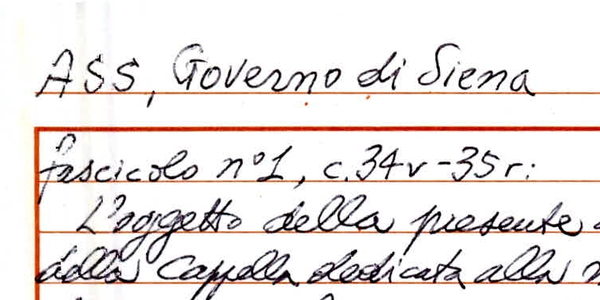 ASS, Governo di Siena
fascicolo n°1, c.34v-35r:
L'oggetto della presente
della Cappella dedicata alla